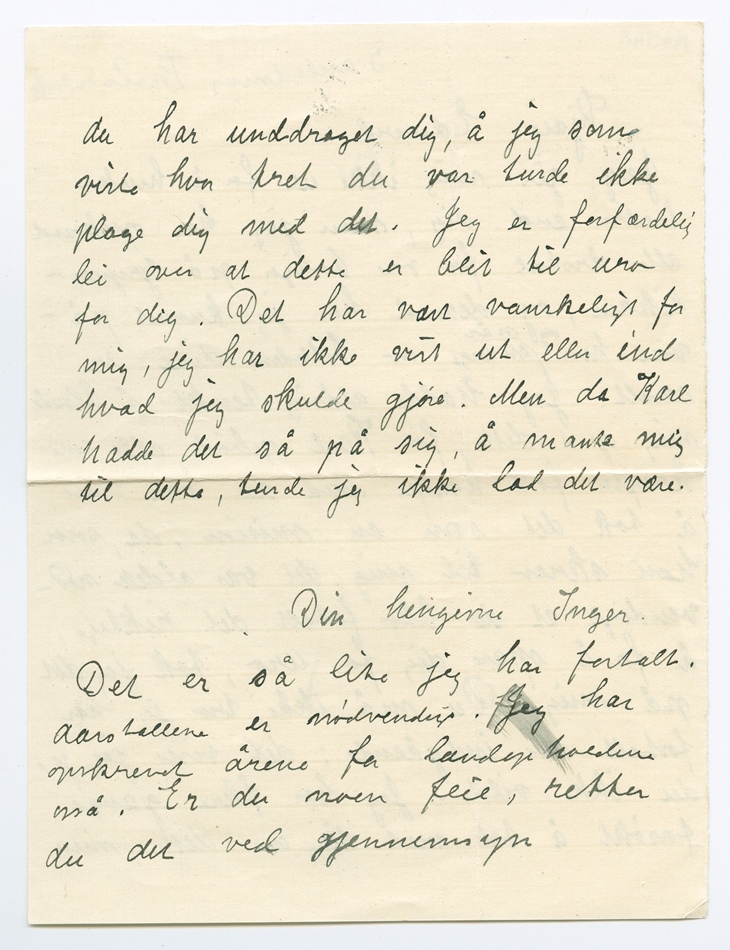 du har unddraget dig, å jeg som
viste hvor tret du var turde ikke
plage dig med det. Jeg er forfærdelig
lei over at dette er blit til uro
for dig. Det har vært vanskeligt for
mig, jeg har ikke vist ut eller ind
hvad jeg skulde gjøre. Men da Karl
hadde det så på sig, å mante mig
til dette, turde jeg ikke lad det være.
Din hengivne Inger.
Det er så lite jeg har fortalt.
aarstallene er nødvendig. Jeg har
opskrevet årene for landopholdene
også. Er du noen feil, retter
du det ved gjennemsyn